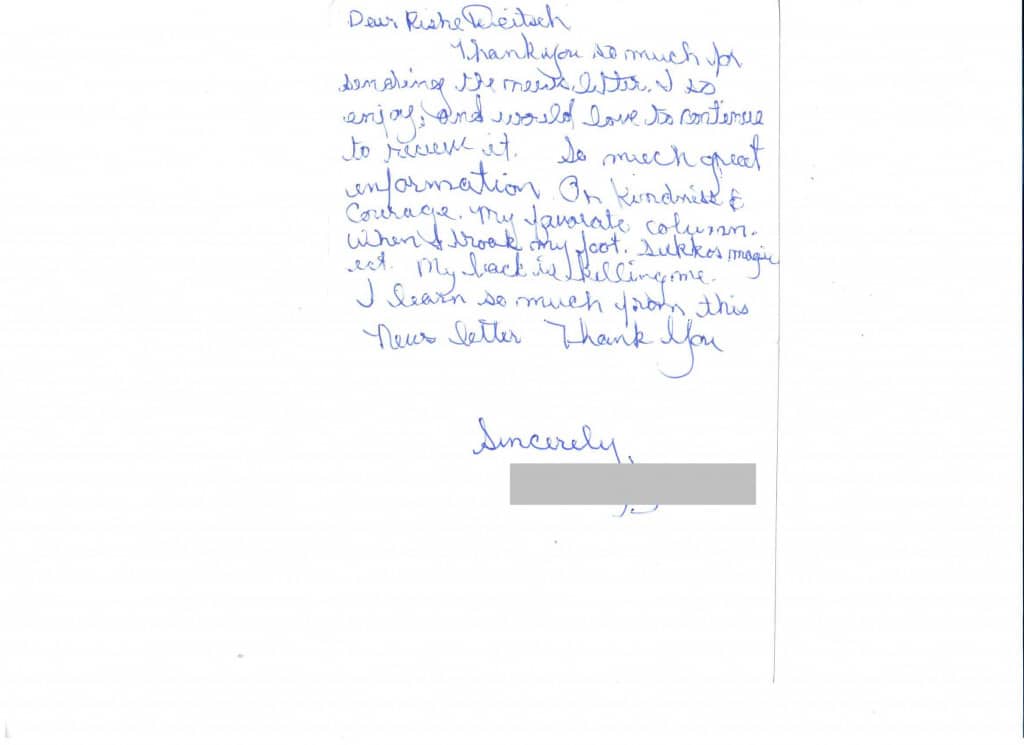 Dear Rishe Deitsch
Thank you so much for
sending the news letter. I so
enjoy, and would love to continue
to recieve it. So much great
information On Kindness &
Courage. My favorate column.
When I broak my foot. Sukkos magic
ect. My back is killing me.
I learn so much from this
News letter Thank You
Sincerely,